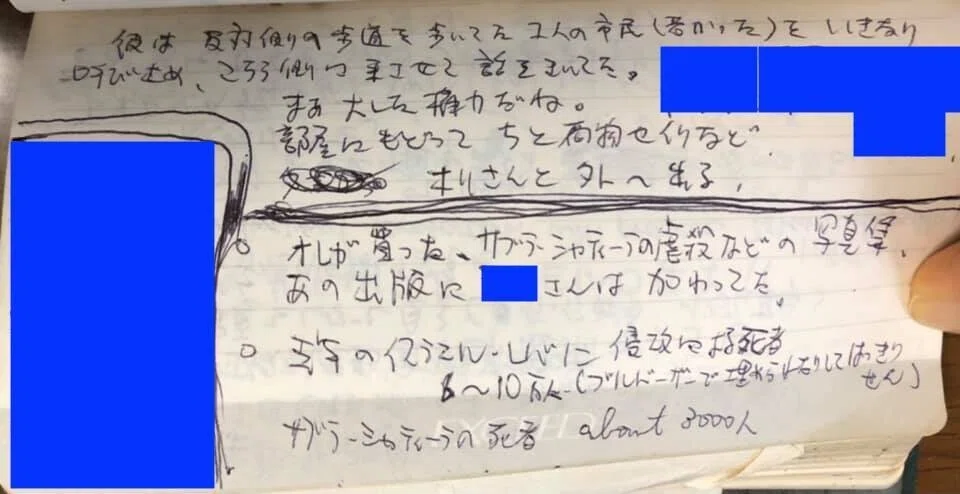 彼は 反対側の歩道を歩いてた 2人の市民(若かった)を いきなり
呼び止め、こちら側に 来させて 話をきいてた。
まあ 大した権力だね。
部屋にもどって ちと 荷物せいりなど
さんと 外へ 出る、
○ オレが 買った、サブラ・シャティーラの虐殺などの 写真集、
あの 出版に さんは 加わってた。
○ 当時の イスラエル・レバノン 侵攻による死者
〜10万人(ブルドーザーで埋められたりしてはっきり
せん)
サブラ・シャティーラの 死者 about 3000人